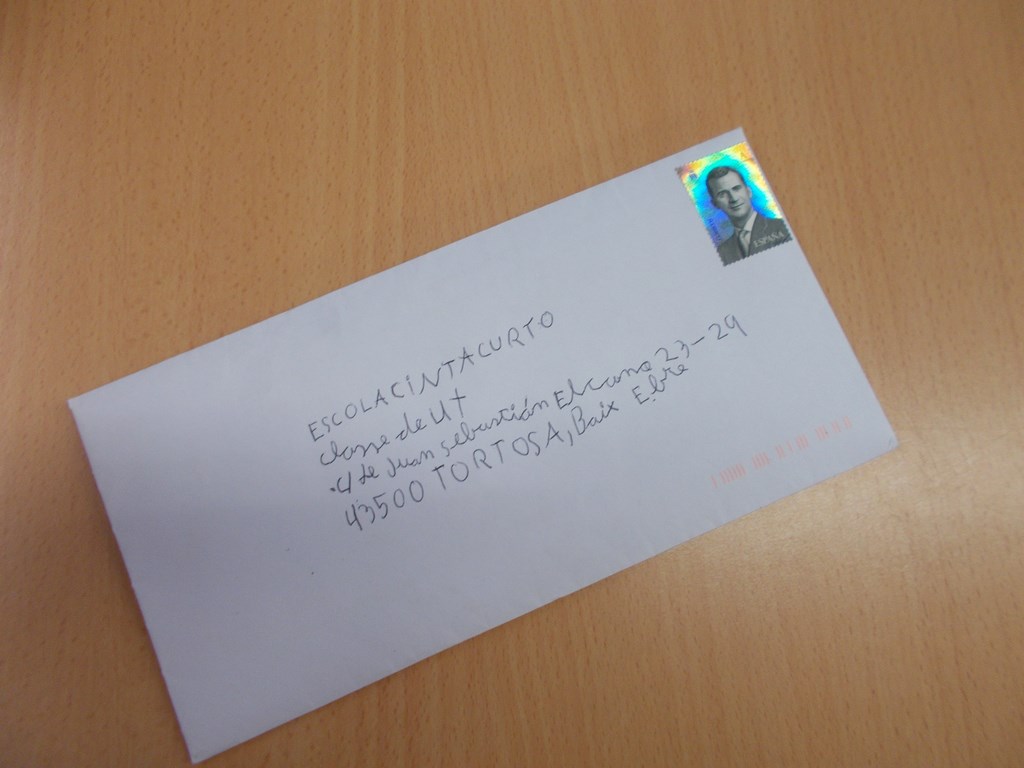 ESPAÑA
ESCOLA CINTA CURTO
classe de U4
c/ de Juan Sebastián Elcano 23-29
43500 TORTOSA, Baix Ebre